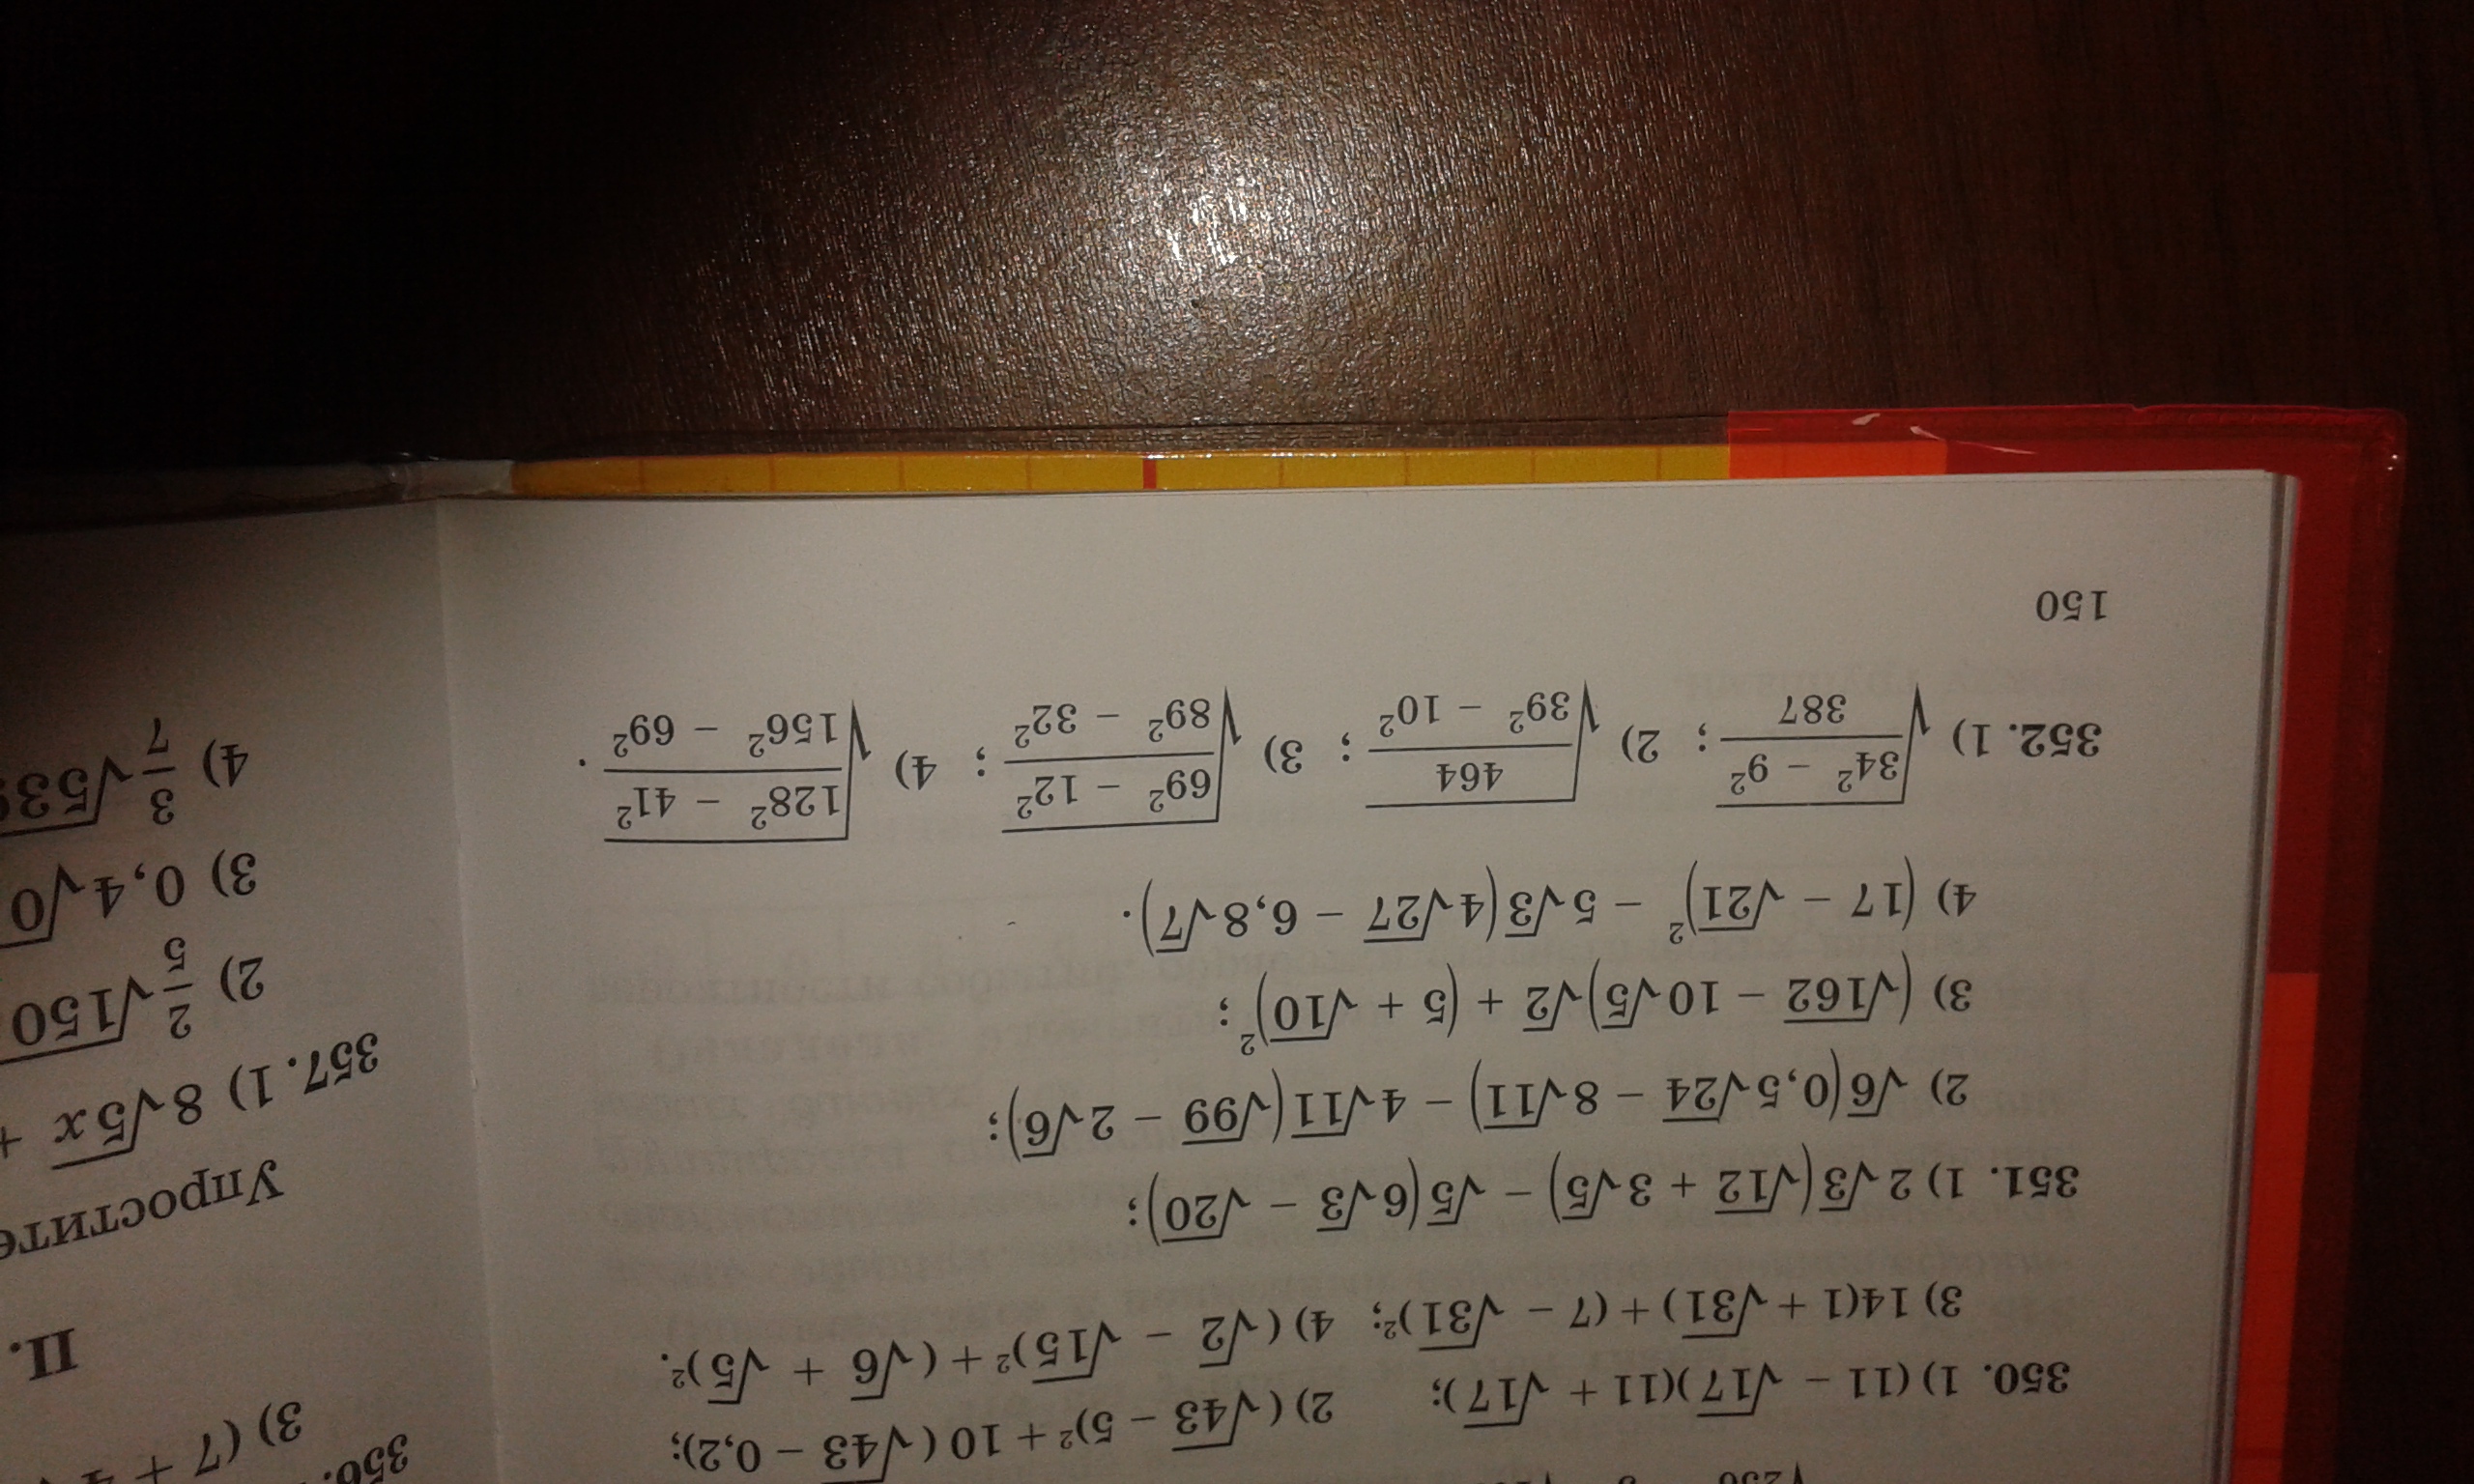 350. 1) (11 − √17)(11 + √17); 2) (√43 − 5)² + 10(√43 − 0,2);
3) 14(1 + √31) + (7 − √31)²; 4) (√2 − √15)² + (√6 + √5)².
351. 1) 2√3(√12 + 3√5) − √5(6√3 − √20);
2) √6(0,5√24 − 8√11) − 4√11(√99 − 2√6);
3) (√162 − 10√5)√2 + (5 + √10)²;
4) (17 − √21)² − 5√3(4√27 − 6,8√7).
352. 1) √((34² − 9²)/387); 2) √(464/(39² − 10²)); 3) √((69² − 12²)/(89² − 32²)); 4) √((128² − 41²)/(156² − 69²)).
150
356.
3) (7 + 4
II.
Упростите
357. 1) 8√5x +
2) 2/5 √150
3) 0,4√0
4) 3/7 √539